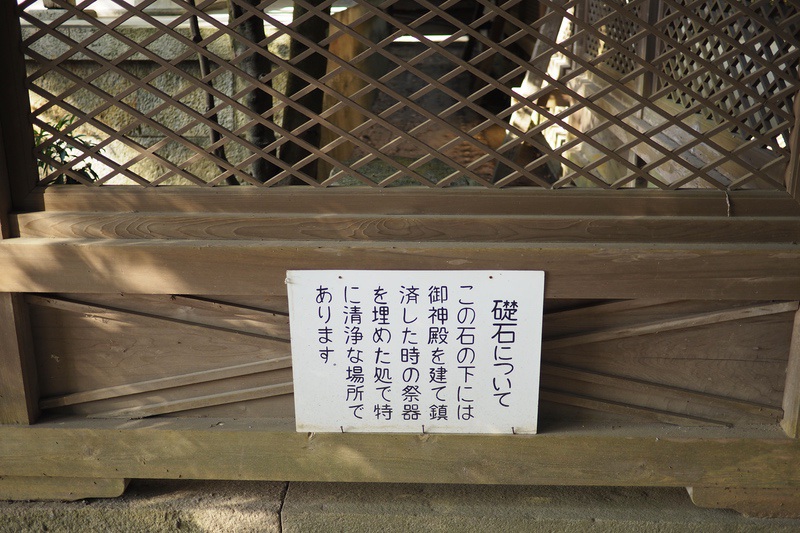 礎石について
この石の下には
御神殿を建て鎮
済した時の祭器
を埋めた処で特
に清浄な場所で
あります